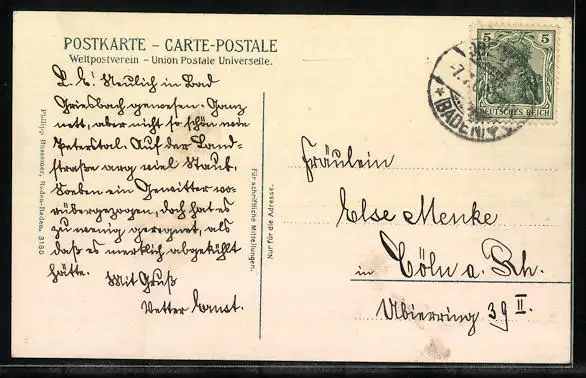 POSTKARTE – CARTE-POSTALE
Weltpostverein – Union Postale Universelle.
L. E! Neulich in Bad
Griesbach gewesen. Ganz
nett, aber nicht so schön wie
Peterstal. Auf der Land-
straße arg viel Staub.
Soeben ein Gewitter vo-
rübergezogen, doch hat es
zu wenig geregnet, als
daß es merklich abgekühlt
hätte.
Mit Gruß
Vetter Ernst.
Philipp Bussemer, Baden-Baden. 3780
Für schriftliche Mitteilungen.
Nur für die Adresse.
5 5
DEUTSCHES REICH
(BADEN)
Fräulein
Else Menke
in Cöln a. Rh.
Ubierring 39 II.